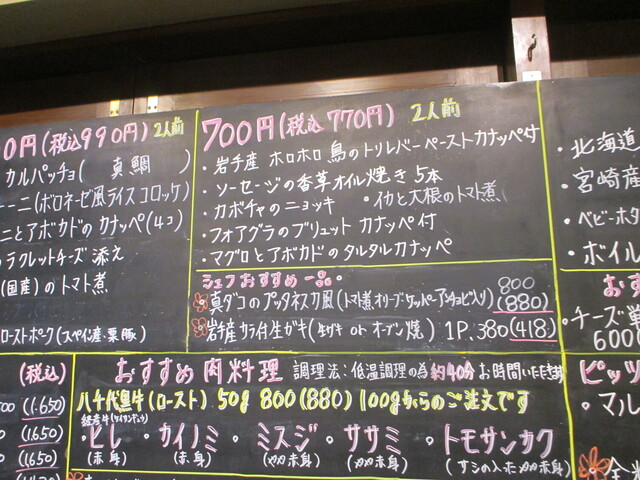 0円(税込990円) 2人前
カルパッチョ( 真鯛 )
ーニ(ボロネーゼ風ライスコロッケ)
ニとアボカドのカナッペ(4コ)
ラクレットチーズ 添え
(国産)のトマト煮
ローストポーク(スペイン産栗豚)
700円(税込770円) 2人前
・岩手産 ホロホロ鳥のトリレバーペーストカナッペ付
・ソーセージの香草オイル焼き5本
・カボチャのニョッキ ・イカと大根のトマト煮
・フォアグラのブリュット カナッペ付
・マグロとアボカドのタルタルカナッペ
シェフおすすめ一品。
真ダコのプッタネスカ風(トマト煮オリーブ・ケッパー・アンチョビ入り) 800 (880)
岩産カラ付生ガキ(生ガキ or オーブン焼) 1P.380(418)
・北海道
・宮崎産
・ベビーホタ
・ボイル
おす
・チーズ
6000
ピッツ
・マル
(税込)
500 (1.650)
0 (1.650)
0 (1650)
おすすめ肉料理 調理法:低温調理の為約40分お時間いただきます
八千代黒牛(ロースト) 50g 800(880) 100gからのご注文です
・ヒレ ・カイノミ ・ミスジ ・ササミ ・トモサンカク
(赤身) (赤身) (やや赤身) (やや赤身) (サシの入ったやや赤身)